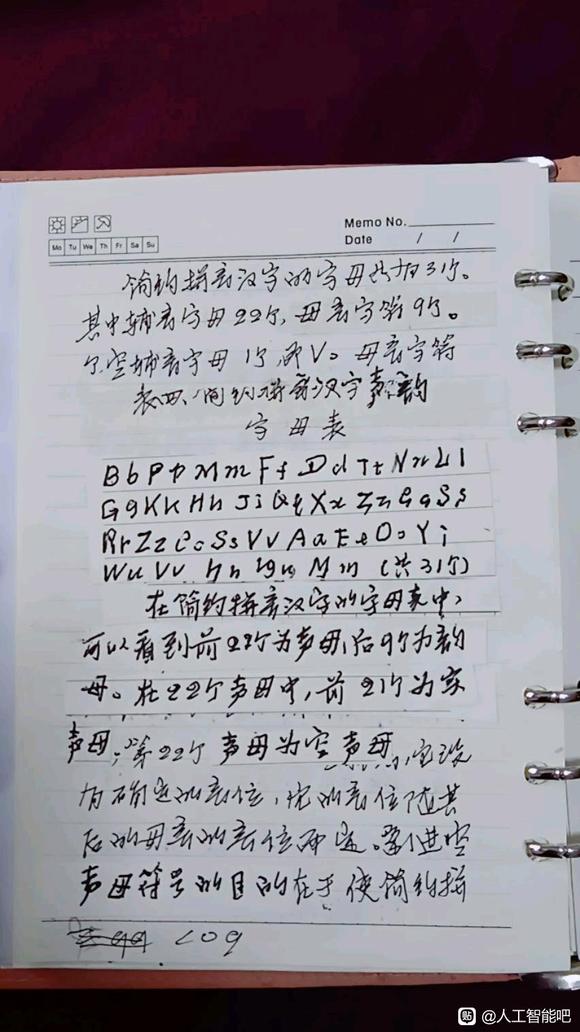 Memo No.
Mo Tu We Th Fr Sa Su
Date / /
简约拼音汉字的字母共有31个。
其中辅音字母22个,母音字符9个。
个空辅音字母1个,即V。母音字符
表四、简约拼音汉字声韵
字母表
Bb Pp Mm Ff Dd Tt Nn Ll
Gg Kk Hh Ji Qq Xx Zz Cc Ss
Rr Zz Cc Ss Vv Aa Ee Oo Yi
Wu Vv Nn Mm (共31个)
在简约拼音汉字的字母表中,
可以看到前22个为声母,后9个为韵
母。在22个声母中,前21个为实
声母,第22个声母为空声母,它没
有确定的音位,它的音位随其
后的母音的音位而定。引进空
声母符号的目的在于使简约拼
<09
@人工智能吧